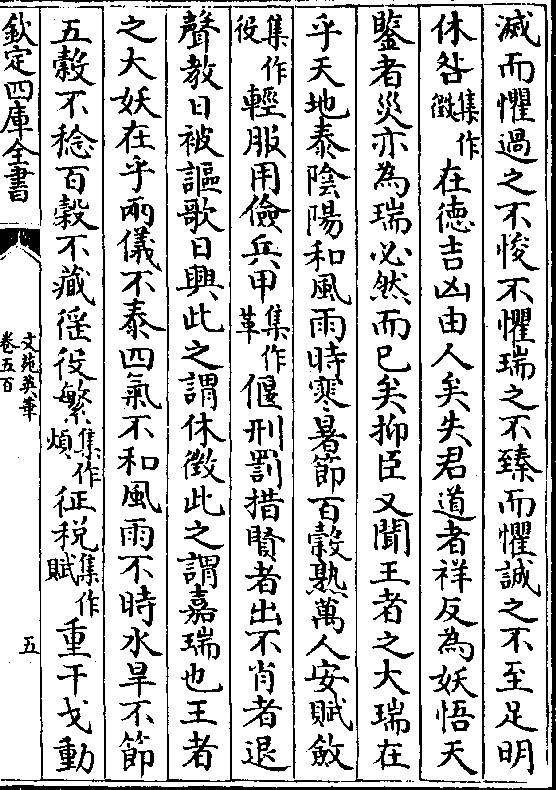 滅而懼過之不悛不懼瑞之不臻而懼誠之不至足明
休咎集作徵在徳吉凶由人矣失君道者祥反為妖悟天
鑒者災亦為瑞必然而已矣抑臣又聞王者之大瑞在
乎天地泰陰陽和風雨時寒暑節百穀熟萬人安賦斂
集作役輕服用儉兵甲集作革偃刑罰措賢者出不肖者退
聲教日被謳歌日興此之謂休徴此之謂嘉瑞也王者
之大妖在乎兩儀不泰四氣不和風雨不時水旱不節
五穀不稔百穀不藏徭役繁集作煩征税集作賦重干戈動
欽定四庫全書
文苑英華
卷五百
五